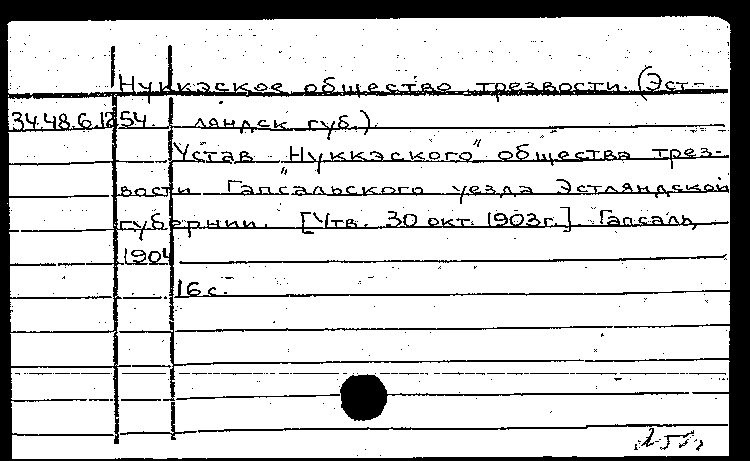 Нуккэское общество трезвости. (Эст-
34.48.6.1254. ляндск. губ.)
Устав „Нуккэского" общества трез-
вости Гапсальского уезда Эстляндской
губернии. [Утв. 30 окт. 1903г.] Гапсаль,
1904
16 с.